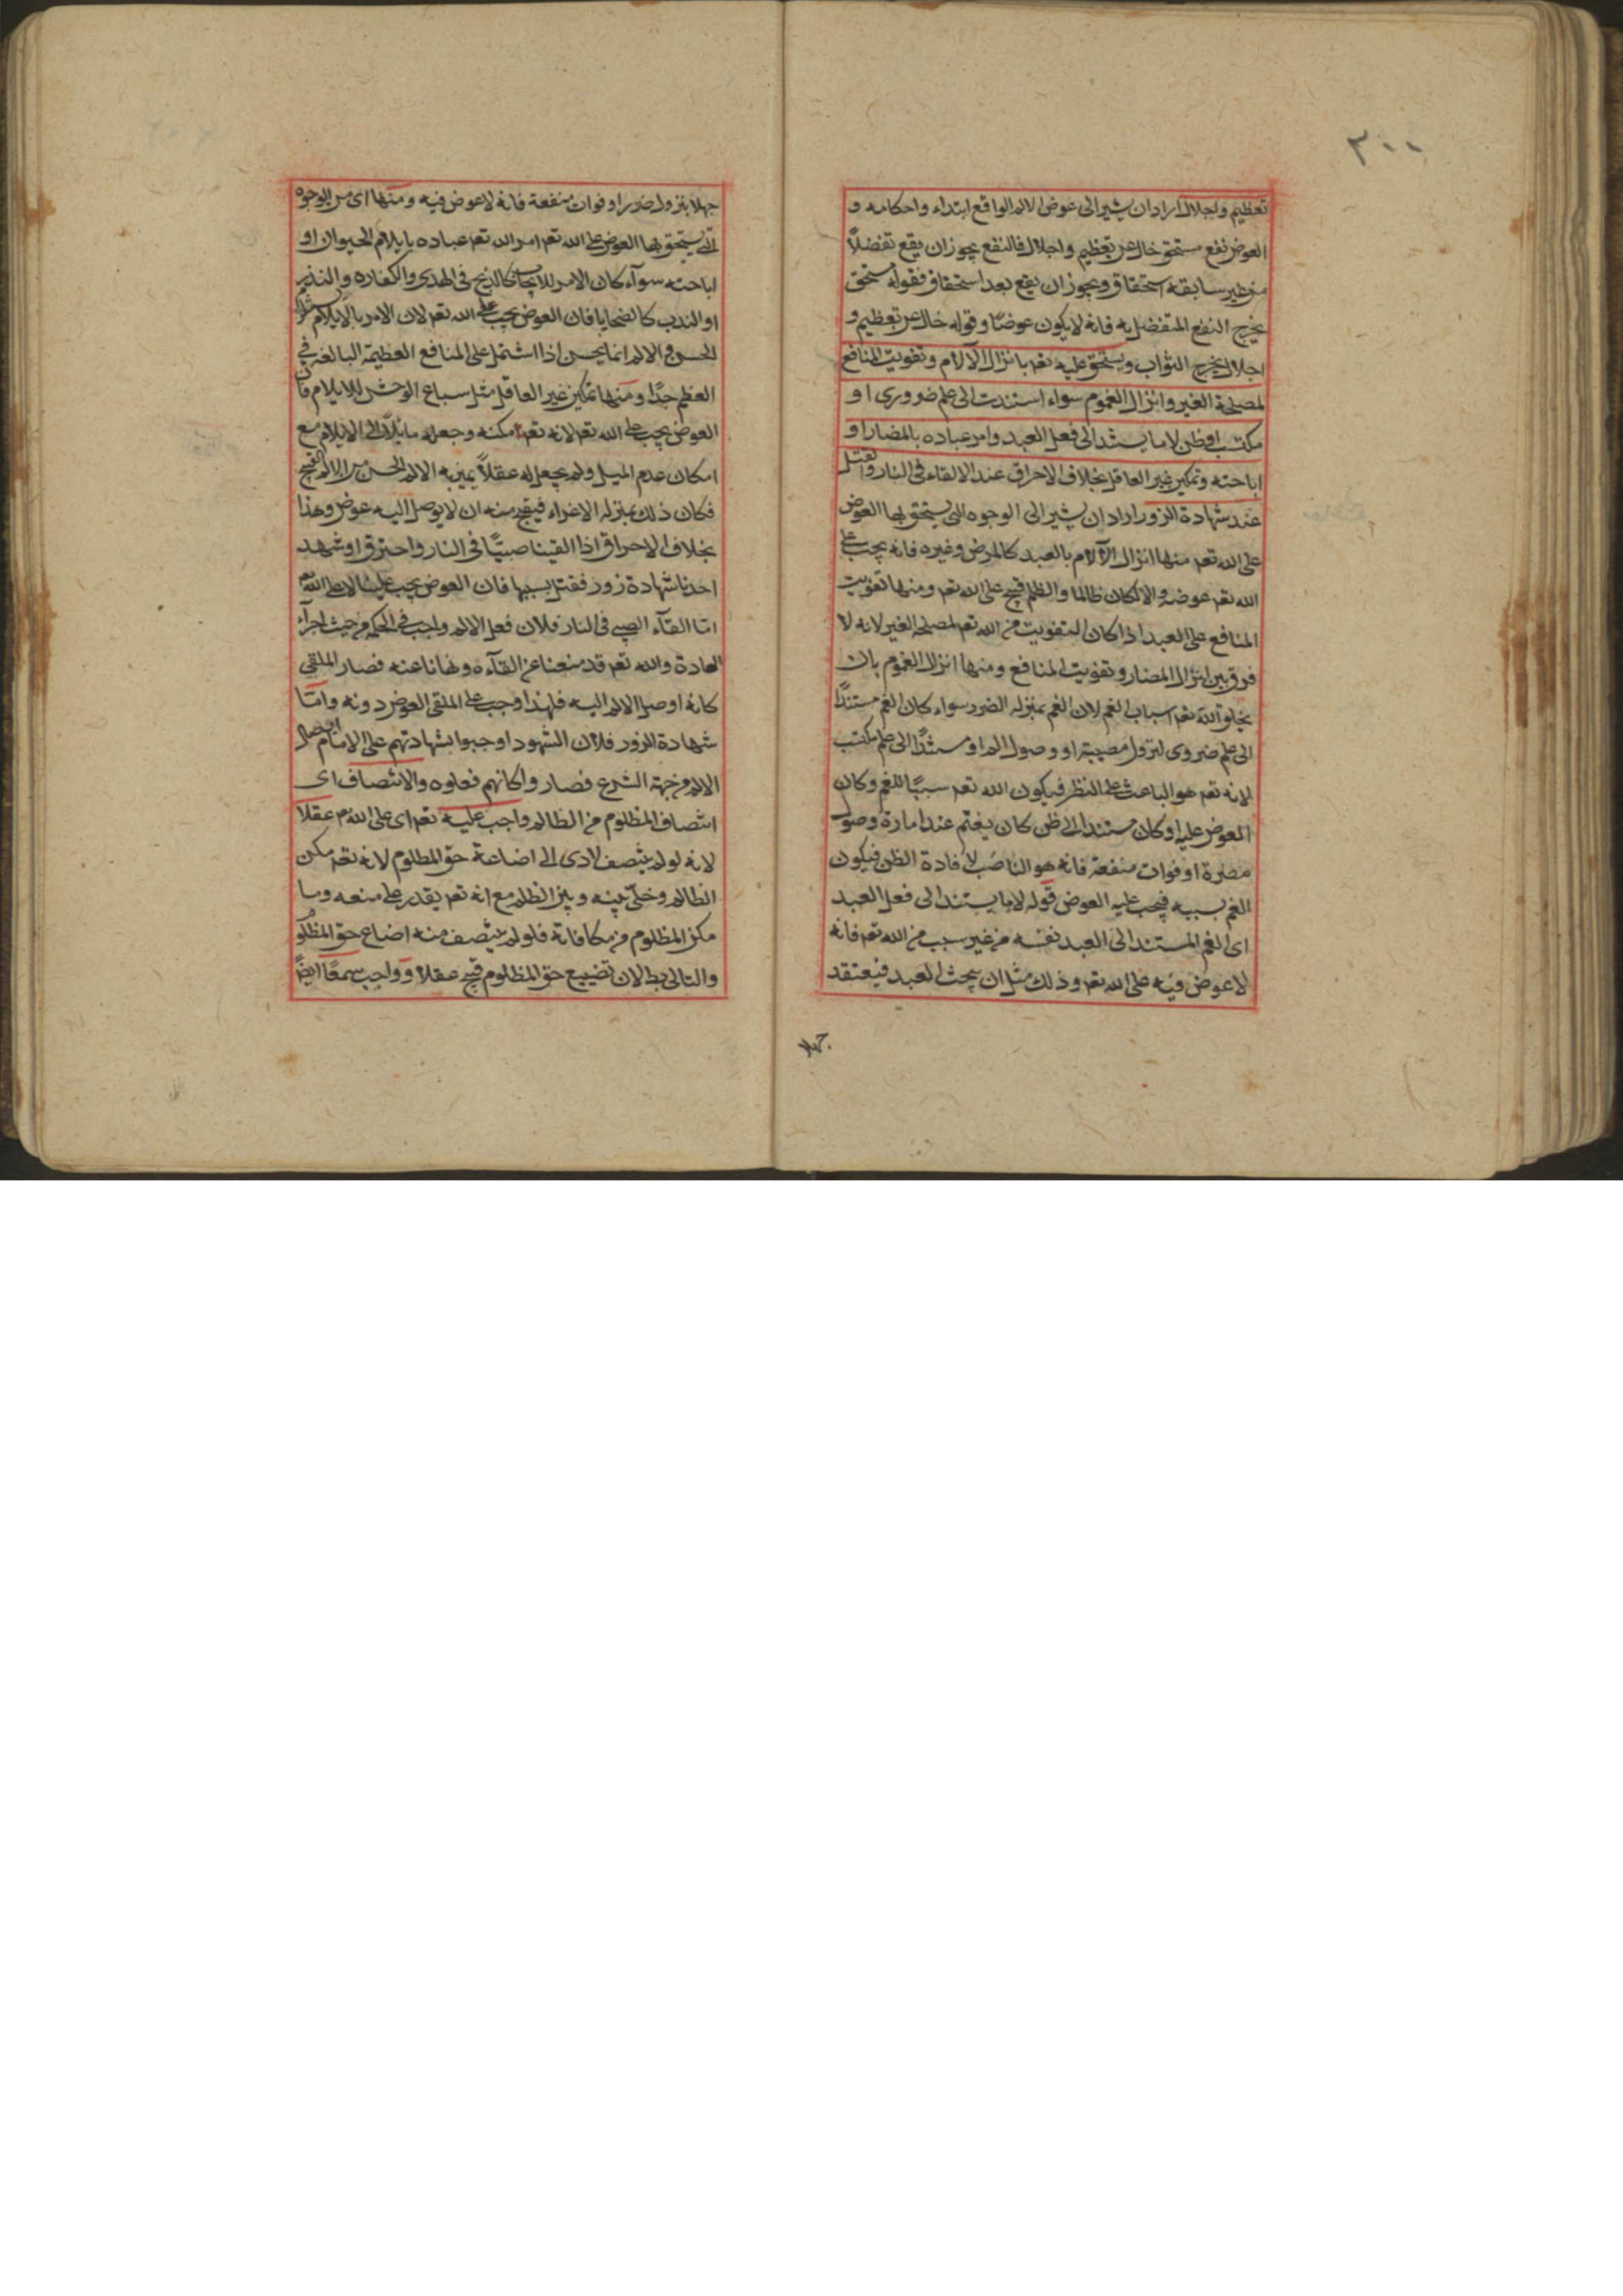 ٣٠٠
تعظيم واجلال اراد ان يشير الى عوض الالم الواقع ابتداء واحكامه و
العوض نفع مستحق خال عن تعظيم واجلال فالنفع يجوز ان يقع تفضلاً
من غير سابقة استحقاق ويجوز ان يقع بعد استحقاق فقوله مستحق
يخرج النفع المتفضل به فانه لا يكون عوضًا وقوله خال عن تعظيم و
اجلال يخرج الثواب ويستحق عليه تعم بانزال الآلام وتفويت المنافع
لمصلحة الغير وانزال الغموم سواء استندت الى علم ضروري او
مكتسب او ظن لا ما يستند الى فعل العبد وامر عباده بالمضار او
اباحته وتمكين غير العاقل بخلاف الاحراق عند الالقاء في النار والقتل
عند شهادة الزور اراد ان يشير الى الوجوه التي يستحق بها العوض
على الله تعم منها انزال الآلام بالعبد كالمرض وغيره فانه يجب على
الله تعم عوضه والا لكان ظالما والظلم قبيح على الله تعم ومنها تفويت
المنافع على العبد اذا كان التفويت من الله تعم لمصلحة الغير لانه لا
فرق بين انزال المضار وتفويت المنافع ومنها انزال الغموم بان
يخلق الله تعم اسباب الغم لان الغم بمنزلة الضرر سواء كان الغم مستندًا
الى علم ضروى لنزول مصيبة او وصول الم او مستندًا الى علم مكتسب
لانه تعم هو الباعث على النظر فيكون الله تعم سببًا للغم وكان
العوض عليه او كان مستندا الى ظن كان يغتم عند امارة وصول
مضرة او فوات منفعة فانه هو الناصب لافادة الظن فيكون
الغم بسببه فيجب عليه العوض قوله لا ما يستند الى فعل العبد
اى الغم المستند الى العبد نفسه من غير سبب من الله تعم فانه
لا عوض فيه على الله تعم وذلك مثل ان يبحث العبد فيعتقد
جهلا
جهلا بنزول ضرر او فوات منفعة فانه لا عوض فيه ومنها اى من الوجوه
التي يستحق بها العوض على الله تعم امر الله تعم عباده بايلام الحيوان او
اباحته سوآء كان الامر للايجاب كالذبح في الهدى والكفاره والنذر
او الندب كالضحايا فان العوض يجب على الله تعم لان الامر بالايلام
للحسن والالم انما يحسن اذا اشتمل على المنافع العظيمة البالغه في
العظم جدًا ومنها تمكين غير العاقل مثل سباع الوحش للايلام فان
العوض يجب على الله تعم لانه تعم مكنه وجعله مايلاً الى الايلام مع
امكان عدم الميل ولم يجعل له عقلاً يميز به الالم الحسن من الالم القبيح
فكان ذلك بمنزلة الاغراء فيقبح منه ان لا يوصل اليه عوض وهذا
بخلاف الاحراق اذا القينا صبيًا في النار واحترق او شهد
احدنا شهادة زور فقتل بسببها فان العوض يجب علينا لا على الله
امّا القآء الصبي في النار فلان فعل الالم واجب في الحكم من حيث اجرآء
العادة والله تعم قد منعنا عن القآءه ونهانا عنه فصار الملقي
كانه اوصل الالم اليه فلهذا وجب على الملقي العوض دونه وامّا
شهادة الزور فلان الشهود اوجبوا بشهادتهم على الامام ايصال
الالم من جهة الشرع فصاروا كانهم فعلوه والانتصاف اى
انتصاف المظلوم من الظالم واجب عليه تعم اى على الله عقلا
لانه لو لم ينتصف لادى الى اضاعة حق المظلوم لانه تعم مكن
الظالم وخلّى بينه وبين الظلم مع انه تعم يقدر على منعه وما
مكن المظلوم من مكافاته فلو لم ينتصف منه اضاع حق المظلوم
والتالى بط لان تضييع حق المظلوم قبيح عقلا وواجب سمعًا ايضًا